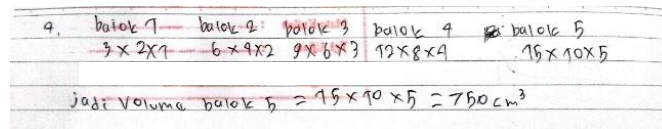 4. balok 1 balok 2 balok 3 balok 4 balok 5
3×2×1 6×4×2 9×6×3 12×8×4 15×10×5
jadi Volume balok 5 = 15×10×5 = 750 cm³